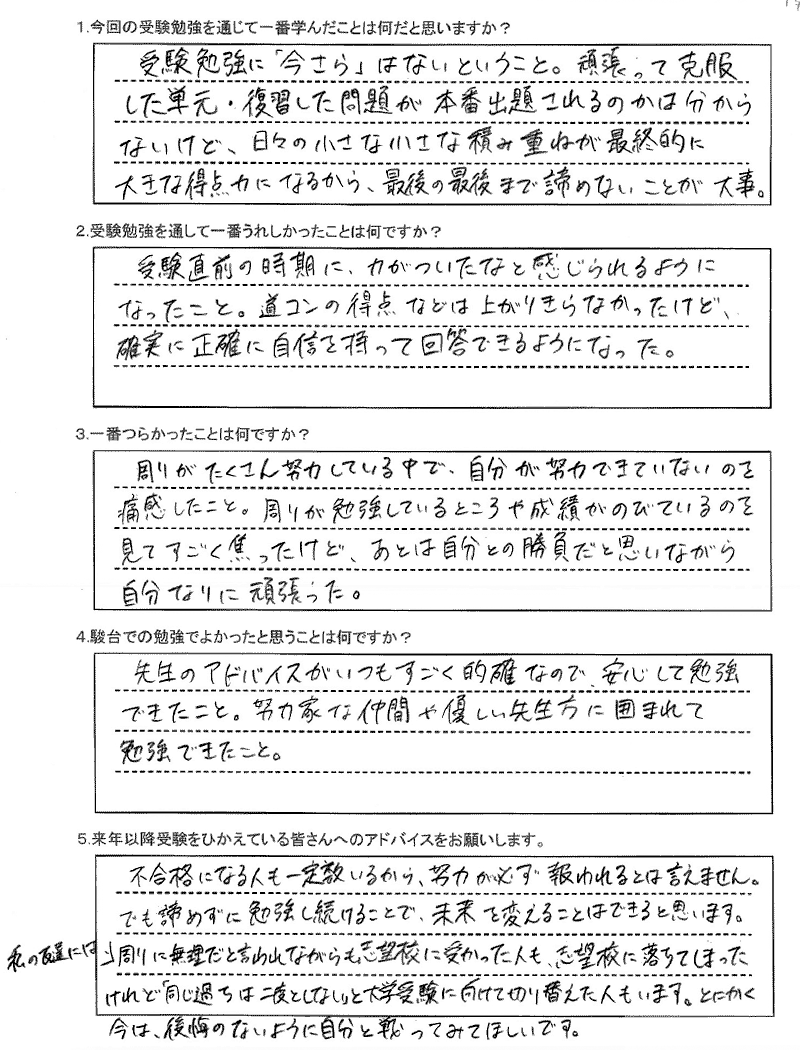 1.今回の受験勉強を通じて一番学んだことは何だと思いますか？
受験勉強に「今さら」はないということ。頑張って克服
した単元・復習した問題が本番出題されるのかは分から
ないけど、日々の小さな小さな積み重ねが最終的に
大きな得点力になるから、最後の最後まで諦めないことが大事。
2.受験勉強を通して一番うれしかったことは何ですか？
受験直前の時期に、力がついたなと感じられるように
なったこと。道コンの得点などは上がりきらなかったけど、
確実に正確に自信を持って回答できるようになった。
3.一番つらかったことは何ですか？
周りがたくさん努力している中で、自分が努力できていないのを
痛感したこと。周りが勉強しているところや成績がのびているのを
見てすごく焦ったけど、あとは自分との勝負だと思いながら
自分なりに頑張った。
4.駿台での勉強でよかったと思うことは何ですか？
先生のアドバイスがいつもすごく的確なので、安心して勉強
できたこと。努力家な仲間や優しい先生方に囲まれて
勉強できたこと。
5.来年以降受験をひかえている皆さんへのアドバイスをお願いします。
不合格になる人も一定数いるから、努力が必ず報われるとは言えません。
でも諦めずに勉強し続けることで、未来を変えることはできると思います。
私の友達には、周りに無理だと言われながらも志望校に受かった人も、志望校に落ちてしまった
けれど「同じ過ちは二度としない」と大学受験に向けて切り替えた人もいます。とにかく
今は、後悔のないように自分と戦ってみてほしいです。